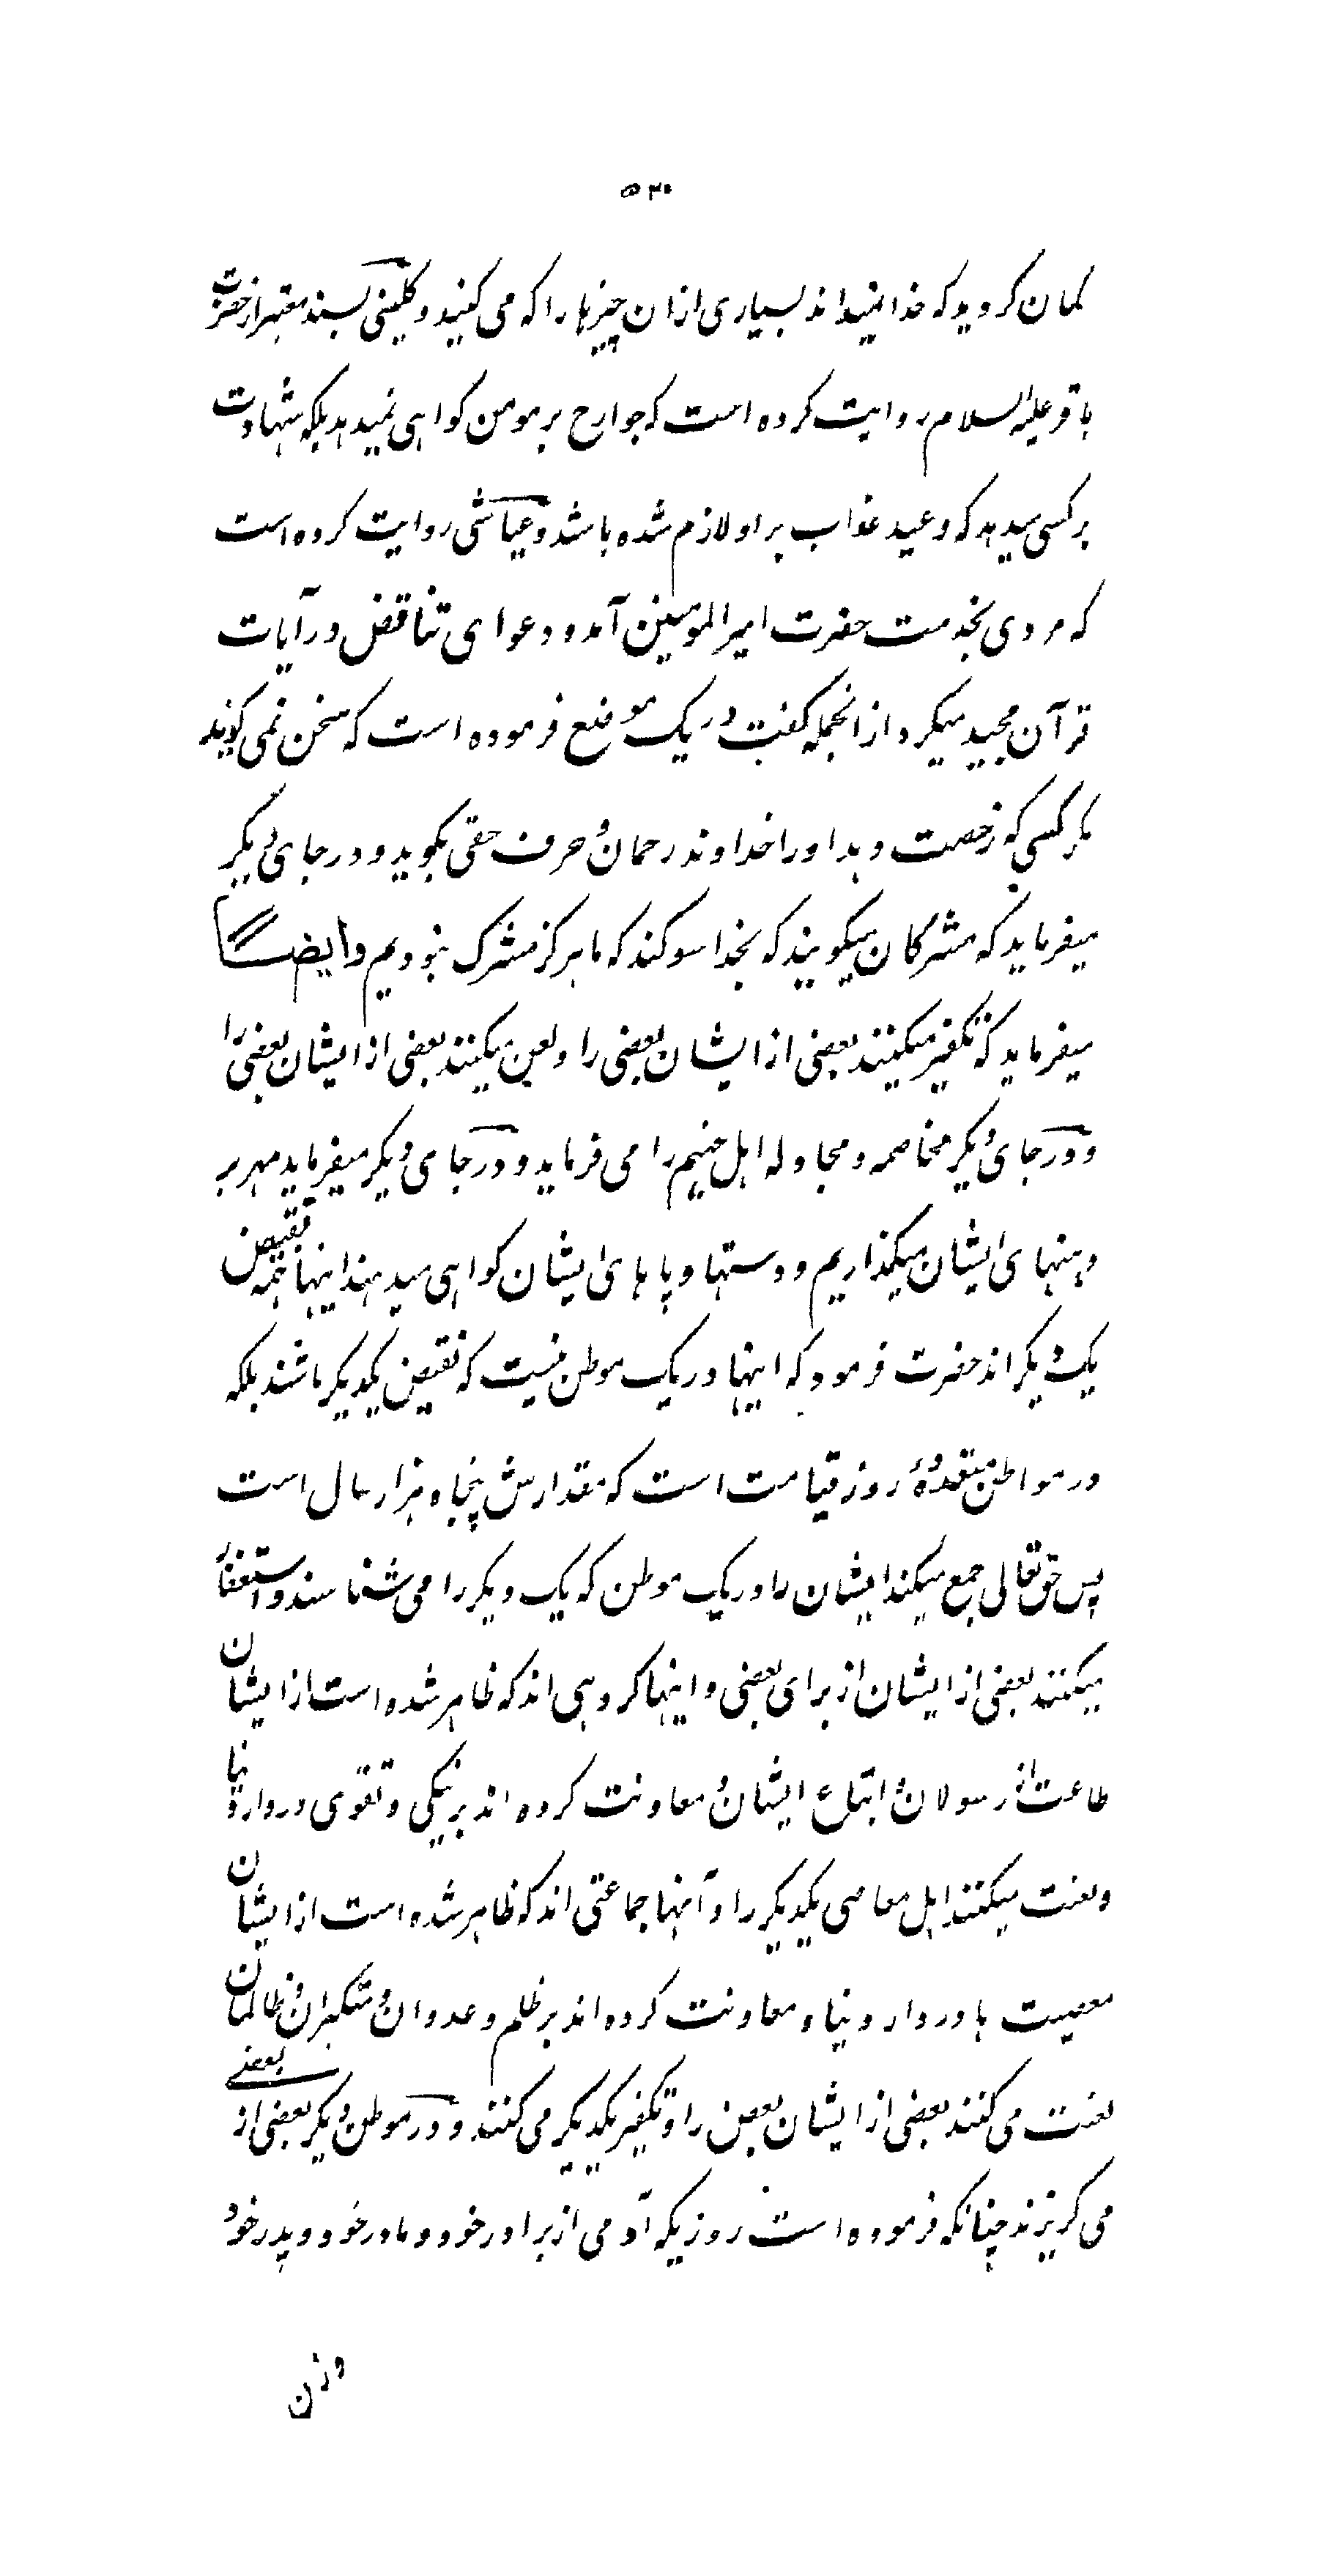 ۵۳۰
کمان کردید که خدا نمیداند بسیاری ازان چیزها را که می کنید و کلینی بسند معتبر از حضرت
باقر علیه السلام روایت کرده است که جوارح بر مومن کواهی نمیدهد بلکه شهادت
بر کسی میدهد که وعید عذاب بر او لازم شده باشد و عیاشی روایت کرده است
که مردی بخدمت حضرت امیر المؤمنین آمد و دعوای تناقض در آیات
قرآن مجید میکرد از انجمله کفت در یک موضع فرموده است که سخن نمی کویند
مکر کسی که رخصت دهد او را خداوند رحمان و حرف حقی بکوید و در جای دیکر
میفرماید که مشرکان میکویند که بخدا سوکند که ما هرکز مشرک نبودیم وایضا
میفرماید که تکفیر میکنند بعضی از ایشان بعضی را و لعن میکنند بعضی از ایشان بعضی را
و در جای دیکر مخاصمه و مجادله اهل جهنم را می فرماید و در جای دیکر میفرماید مهر بر
دهنهای ایشان میکذاریم و دستها و پاهای ایشان کواهی میدهند اینها همه نقیض
یک دیکراند حضرت فرمود که اینها در یک موطن نیست که نقیض یکدیکر باشند بلکه
در مواطن متعدده روز قیامت است که مقدارش پنجاه هزار سال است
پس حق تعالی جمع میکند ایشان را در یک موطن که یک دیکر را می شناسند و استغفار
میکنند بعضی از ایشان از برای بعضی و اینها کروهی اند که ظاهر شده است از ایشان
طاعت از رسولان و اتباع ایشان و معاونت کرده اند بر نیکی و تقوی در دار دنیا
و لعنت میکنند اهل معاصی یکدیکر را و آنها جماعتی اند که ظاهر شده است از ایشان
معصیت ها در دار دنیا و معاونت کرده اند بر ظلم و عدوان و متکبران و ظالمان
لعنت می کنند بعضی از ایشان بعض را و تکفیر یکدیکر می کنند و در موطن دیکر بعضی از بعضے
می کریزند چنانکه فرموده است روزیکه آدمی از برادر خود و مادر خود و پدر خود
و زن